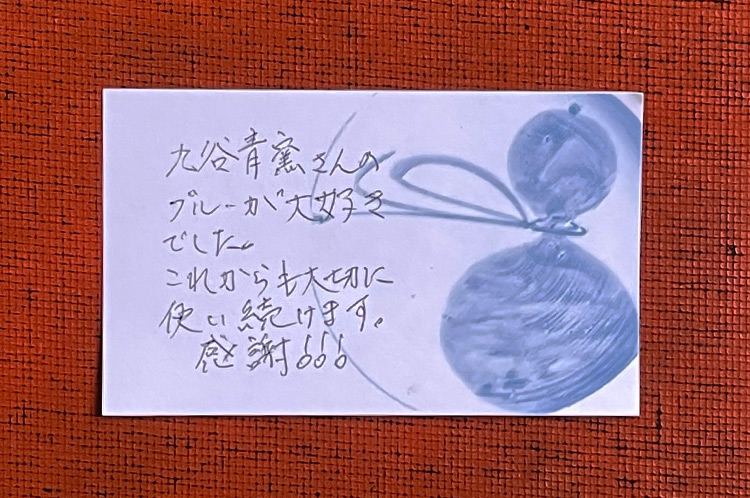 九谷青窯さんの
ブルーが大好き
でした。
これからも大切に
使い続けます。
感謝!!!